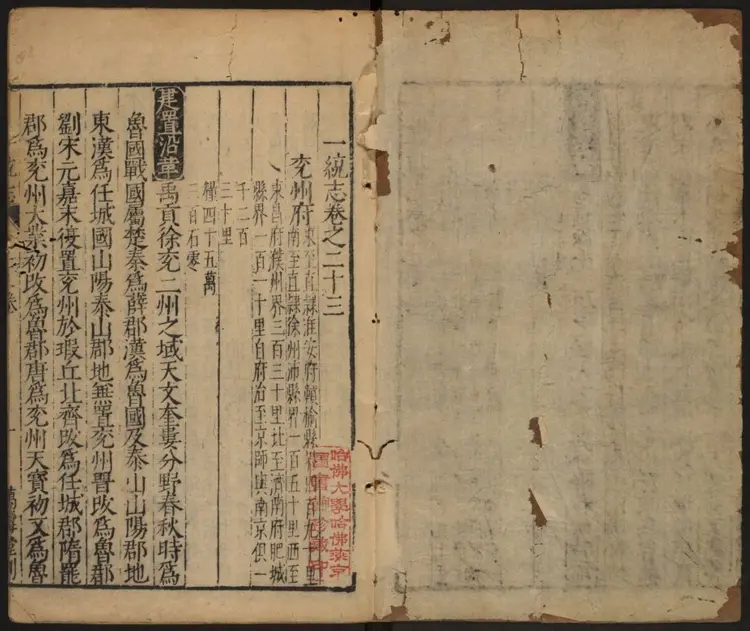 一統志卷之二十三
兖州府
東至直隸淮安府贛榆縣界四百九十里
南至直隸徐州沛縣界一百五十里西至
東昌府濮州界三百三十里北至濟南府肥城
縣界一百一十里自府治至京師與南京俱一
千二百
三十里
糧四十五萬
二百石零
建置沿革禹貢徐兖二州之域天文奎婁分野春秋時爲
魯國戰國屬楚秦爲薛郡漢爲魯國及泰山山陽郡地
東漢爲任城國山陽泰山郡地兼置兖州晋改爲魯郡
劉宋元嘉末復置兖州於瑕丘北齊改爲任城郡隋罷
郡爲兖州大業初改爲魯郡唐爲兖州天寶初又爲魯
哈佛大學哈佛燕京
圖書館珍藏印